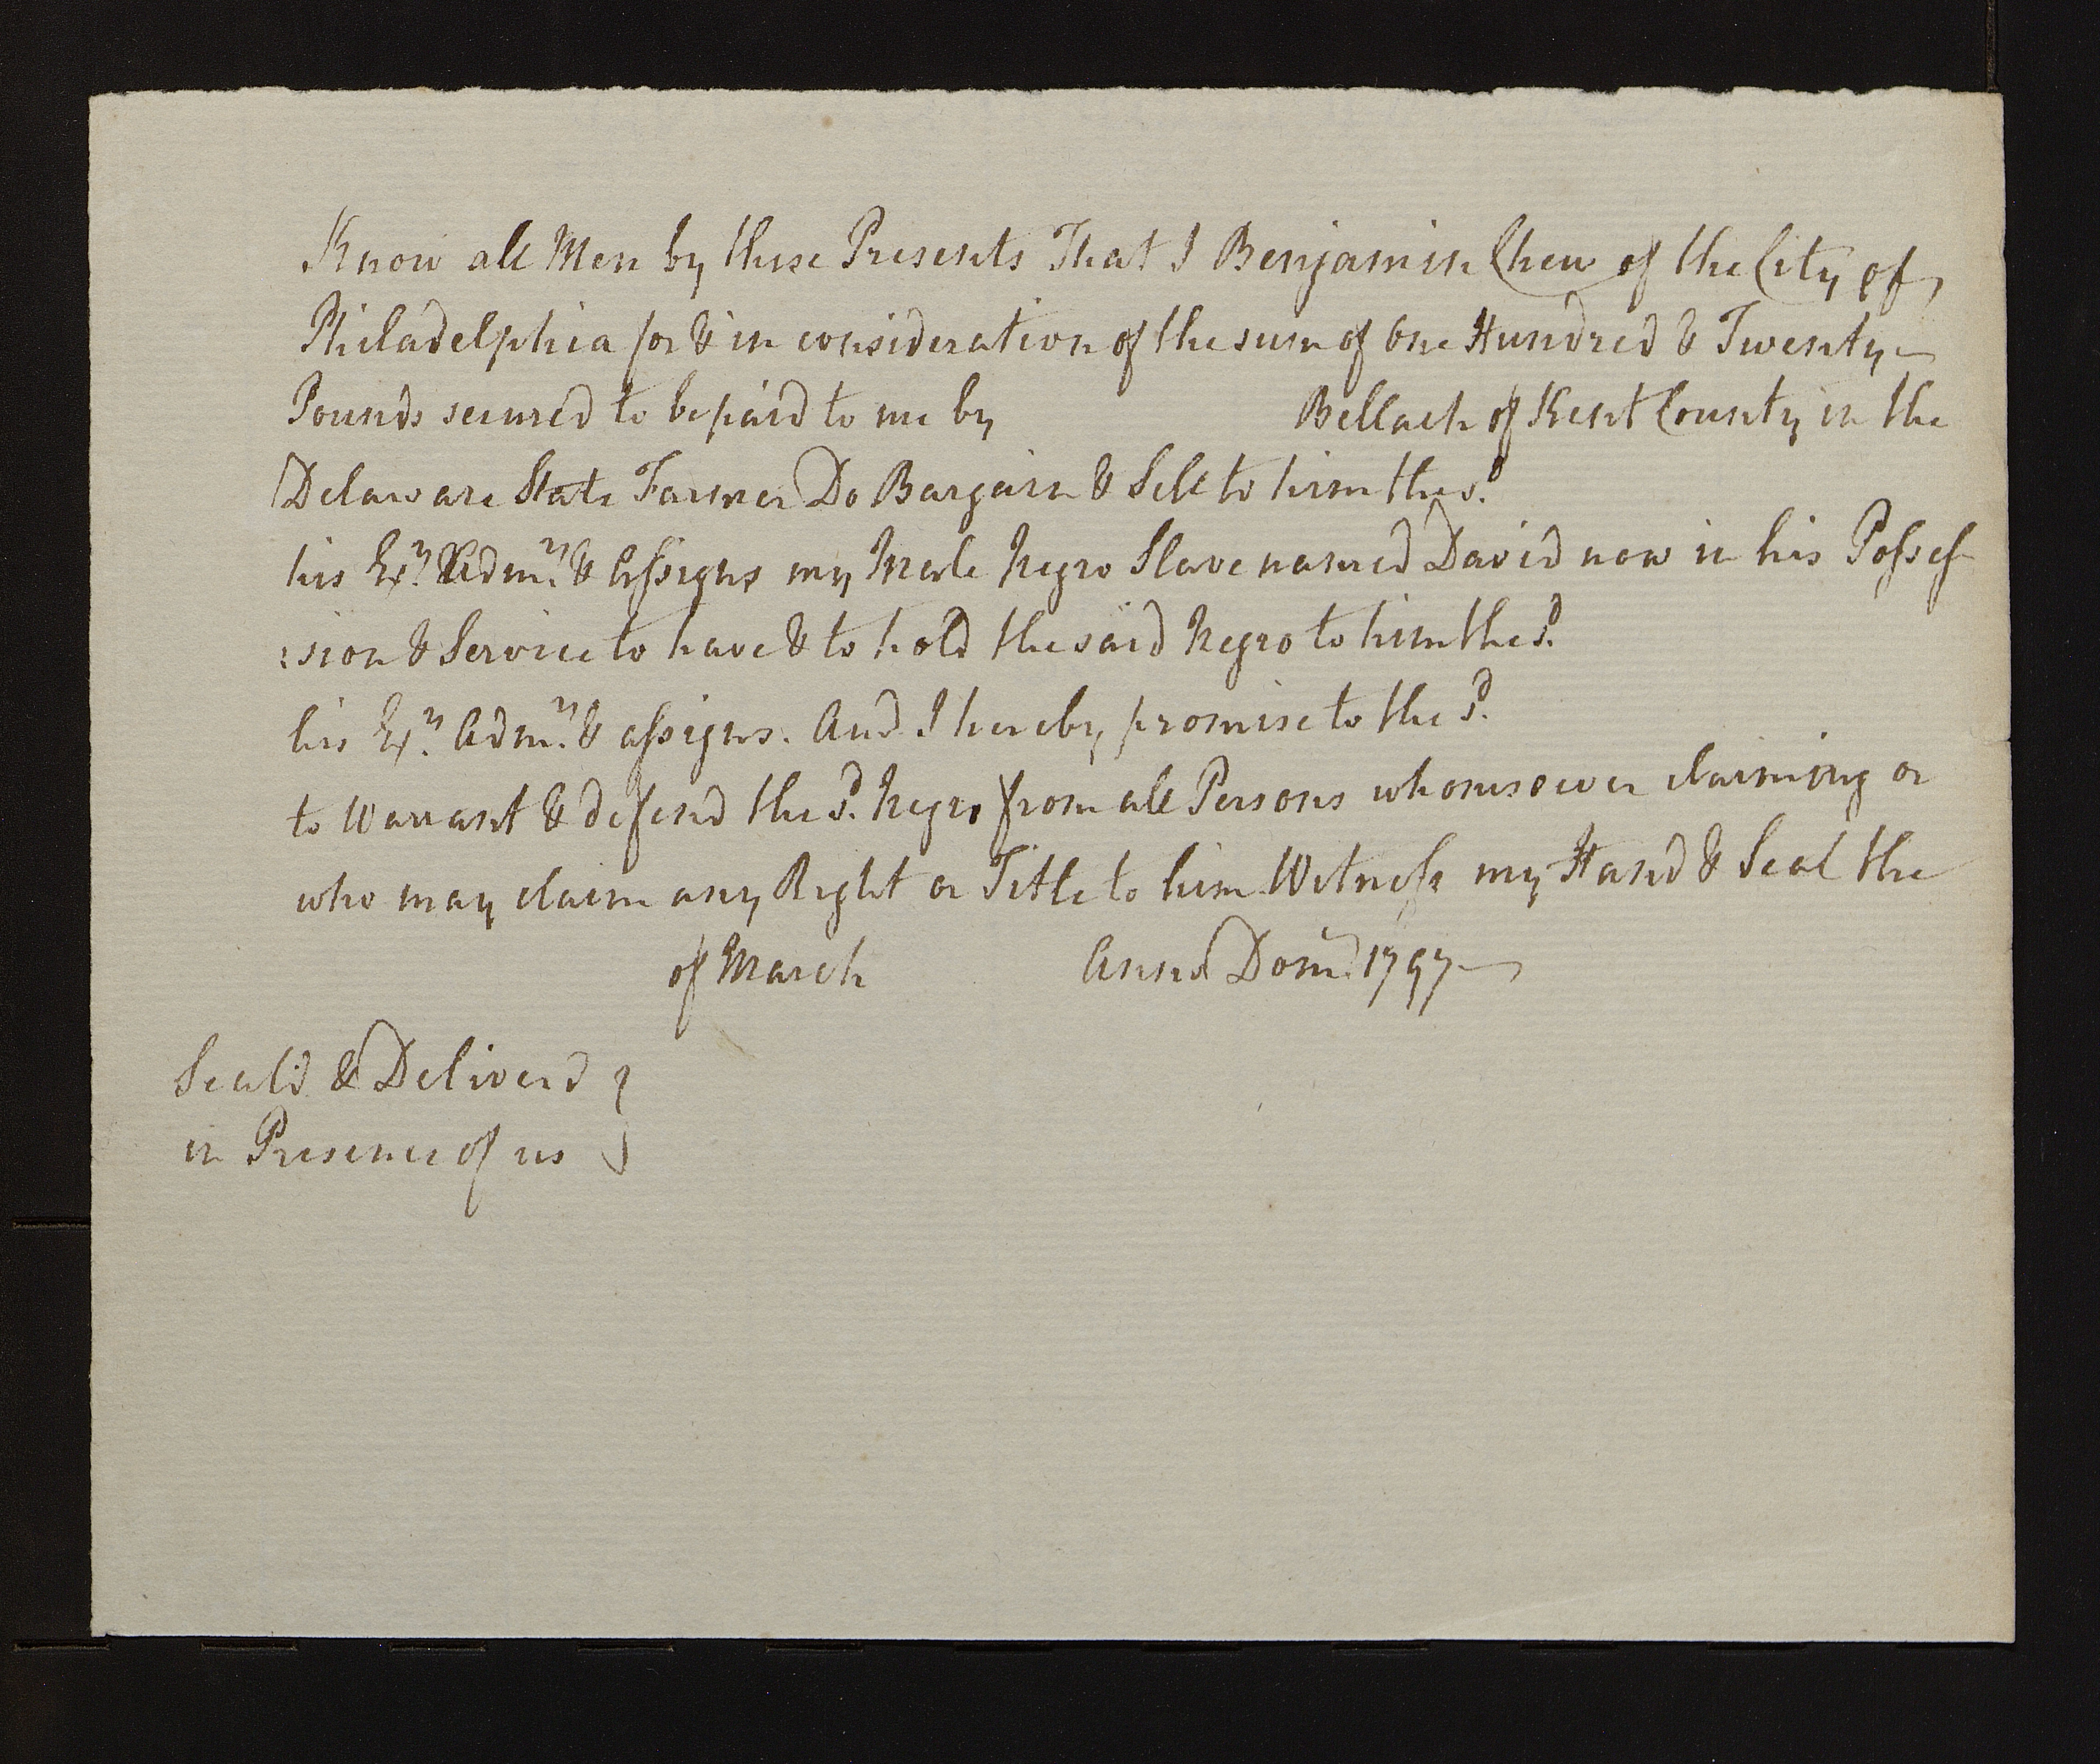 Know all Men by these Presents That I Benjamin Chew of the City of
Philadelphia for & in consideration of the sum of One Hundred & Twenty
Pounds secured to be paid to me by Bellach of Kent County in the
Delaware State Farmer Do Bargain & Sell to him the sd.
his Exrs. Admrs. & Assigns my Male Negro Slave named David now in his Posses
:sion & Service to have & to hold the said Negro to him the sd.
his Exrs. Admrs. & assigns. And I hereby promise to the sd.
to Warrant & defend the sd. Negro from all Persons whomsoever claiming or
who may claim any Right or Title to him Witness my Hand & Seal the
of March Anno Domi. 1797
Seal'd & Deliverd
in Presence of us